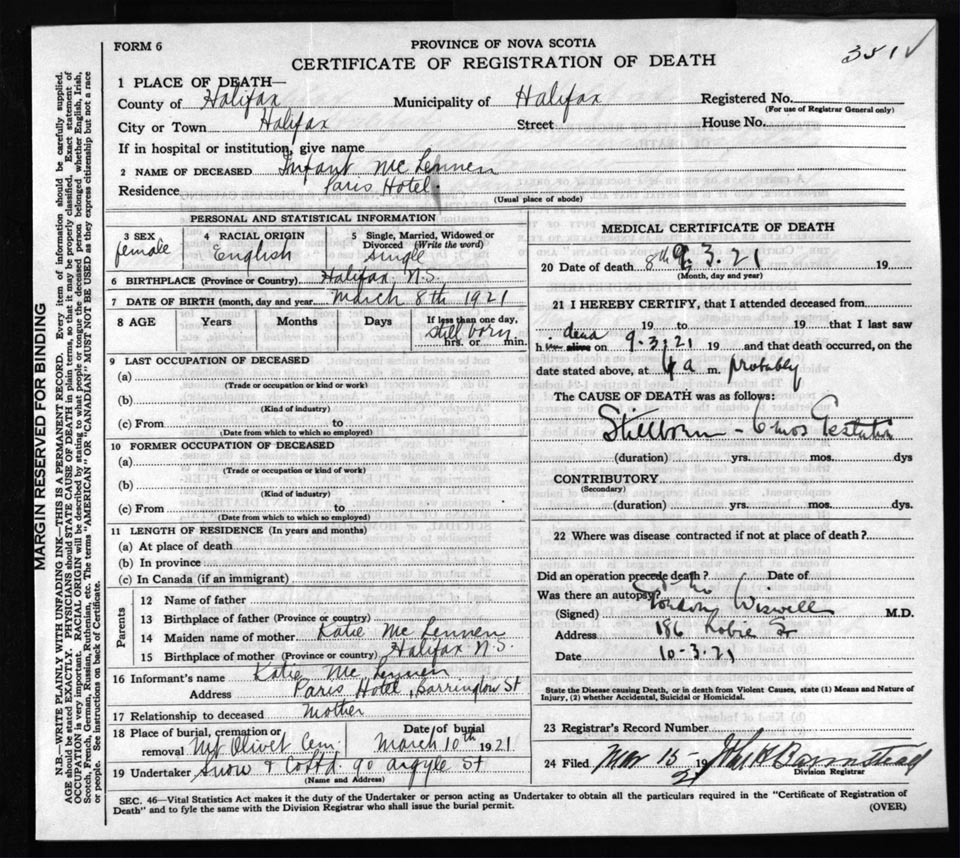 FORM 6
PROVINCE OF NOVA SCOTIA
CERTIFICATE OF REGISTRATION OF DEATH
3511
1 PLACE OF DEATH—
County of Halifax Municipality of Halifax Registered No.
(For use of Registrar General only)
City or Town Halifax Street House No.
If in hospital or institution, give name
2 NAME OF DECEASED Infant Mc Lennen
Residence Paris Hotel.
(Usual place of abode)
PERSONAL AND STATISTICAL INFORMATION
3 SEX female
4 RACIAL ORIGIN English
5 Single, Married, Widowed or Divorced (Write the word) Single
6 BIRTHPLACE (Province or Country) Halifax N.S.
7 DATE OF BIRTH (month, day and year) March 8th 1921
8 AGE Years Months Days If less than one day, still born hrs. or min.
9 LAST OCCUPATION OF DECEASED
(a)
(Trade or occupation or kind or work)
(b)
(Kind of industry)
(c) From to
(Date from which to which so employed)
10 FORMER OCCUPATION OF DECEASED
(a)
(Trade or occupation or kind of work)
(b)
(Kind of industry)
(c) From to
(Date from which to which so employed)
11 LENGTH OF RESIDENCE (In years and months)
(a) At place of death
(b) In province
(c) In Canada (if an immigrant)
Parents
12 Name of father
13 Birthplace of father (Province or country)
14 Maiden name of mother Katie Mc Lennen
15 Birthplace of mother (Province or country) Halifax N.S.
16 Informant's name Katie Mc Lennen
Address Paris Hotel, Barrington St
17 Relationship to deceased Mother
18 Place of burial, cremation or removal Mt Olivet Cem. Date of burial March 10th 1921
19 Undertaker Snow & Co Ltd. 90 Argyle St
(Name and Address)
MEDICAL CERTIFICATE OF DEATH
20 Date of death 8th 9.3.21 19
(Month, day and year)
21 I HEREBY CERTIFY, that I attended deceased from
19 to 19 that I last saw
h alive dead on 9.3.21 19 and that death occurred, on the
date stated above, at 4 a m. probably
The CAUSE OF DEATH was as follows:
Stillborn - 6 mos Gestation
(duration) yrs. mos. dys
CONTRIBUTORY
(Secondary)
(duration) yrs. mos. dys.
22 Where was disease contracted if not at place of death?
Did an operation precede death? Date of
Was there an autopsy? No
(Signed) Wiswell M.D.
Address 186 Robie St
Date 10-3.21
State the Disease causing Death, or in death from Violent Causes, state (1) Means and Nature of
Injury, (2) whether Accidental, Suicidal or Homicidal.
23 Registrar's Record Number
24 Filed Mar 15- 1921
Division Registrar
SEC. 46—Vital Statistics Act makes it the duty of the Undertaker or person acting as Undertaker to obtain all the particulars required in the "Certificate of Registration of
Death" and to fyle the same with the Division Registrar who shall issue the burial permit. (OVER)
MARGIN RESERVED FOR BINDING
N.B.—WRITE PLAINLY WITH UNFADING INK—THIS IS A PERMANENT RECORD. Every item of information should be carefully supplied.
AGE should be stated EXACTLY. PHYSICIANS should STATE CAUSE OF DEATH in plain terms, so that it may be properly classified. Exact statement of
OCCUPATION is very important. RACIAL ORIGIN will be described by stating to what people or tongue the deceased person belonged whether English, Irish,
Scotch, French, German, Russian, Ruthenian, etc. The terms "AMERICAN" OR "CANADIAN" MUST NOT BE USED as they express citizenship but not a race
or people. See instructions on back of Certificate.